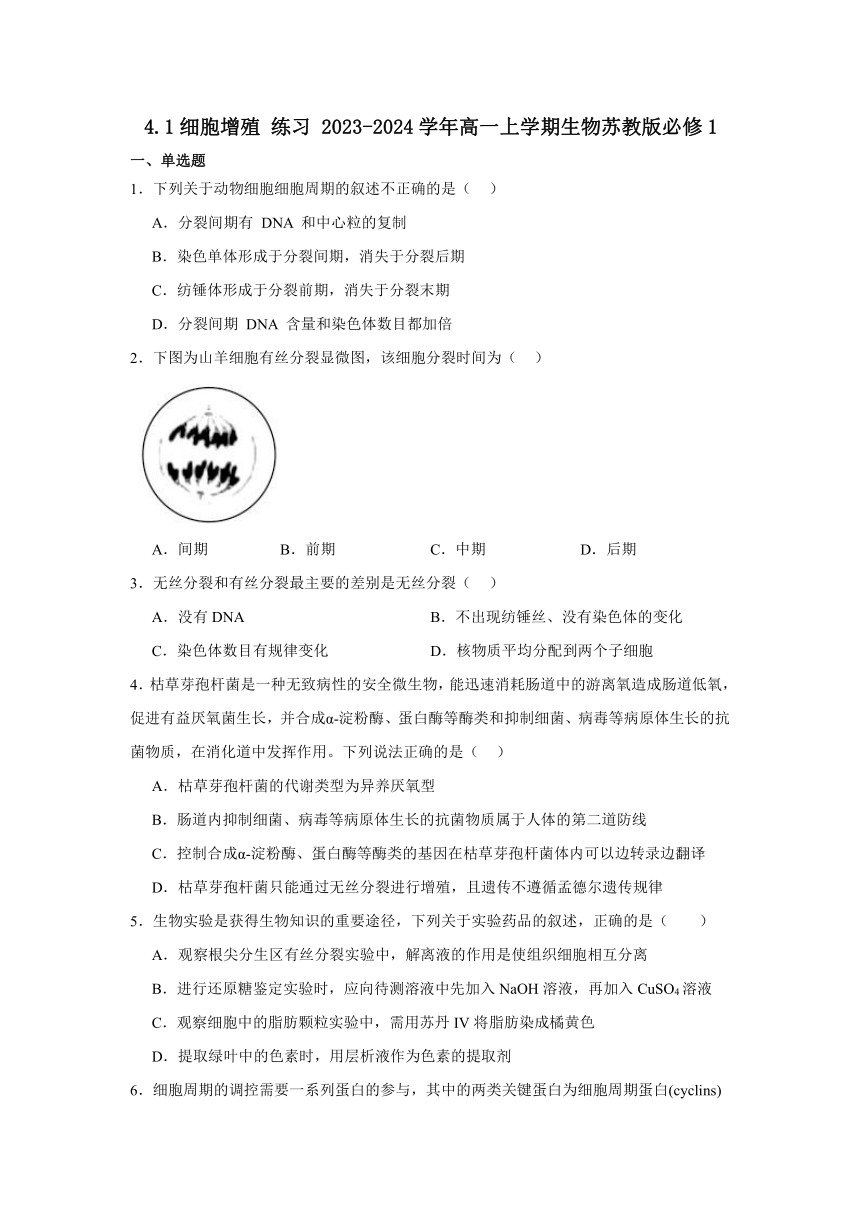 4.1细胞增殖 练习 2023-2024学年高一上学期生物苏教版必修1
一、单选题
1．下列关于动物细胞细胞周期的叙述不正确的是（ ）
A．分裂间期有 DNA 和中心粒的复制
B．染色单体形成于分裂间期，消失于分裂后期
C．纺锤体形成于分裂前期，消失于分裂末期
D．分裂间期 DNA 含量和染色体数目都加倍
2．下图为山羊细胞有丝分裂显微图，该细胞分裂时间为（ ）
A．间期 B．前期 C．中期 D．后期
3．无丝分裂和有丝分裂最主要的差别是无丝分裂（ ）
A．没有DNA B．不出现纺锤丝、没有染色体的变化
C．染色体数目有规律变化 D．核物质平均分配到两个子细胞
4．枯草芽孢杆菌是一种无致病性的安全微生物，能迅速消耗肠道中的游离氧造成肠道低氧，
促进有益厌氧菌生长，并合成α-淀粉酶、蛋白酶等酶类和抑制细菌、病毒等病原体生长的抗
菌物质，在消化道中发挥作用。下列说法正确的是（ ）
A．枯草芽孢杆菌的代谢类型为异养厌氧型
B．肠道内抑制细菌、病毒等病原体生长的抗菌物质属于人体的第二道防线
C．控制合成α-淀粉酶、蛋白酶等酶类的基因在枯草芽孢杆菌体内可以边转录边翻译
D．枯草芽孢杆菌只能通过无丝分裂进行增殖，且遗传不遵循孟德尔遗传规律
5．生物实验是获得生物知识的重要途径，下列关于实验药品的叙述，正确的是（ ）
A．观察根尖分生区有丝分裂实验中，解离液的作用是使组织细胞相互分离
B．进行还原糖鉴定实验时，应向待测溶液中先加入NaOH溶液，再加入CuSO₄溶液
C．观察细胞中的脂肪颗粒实验中，需用苏丹IV将脂肪染成橘黄色
D．提取绿叶中的色素时，用层析液作为色素的提取剂
6．细胞周期的调控需要一系列蛋白的参与，其中的两类关键蛋白为细胞周期蛋白(cyclins)